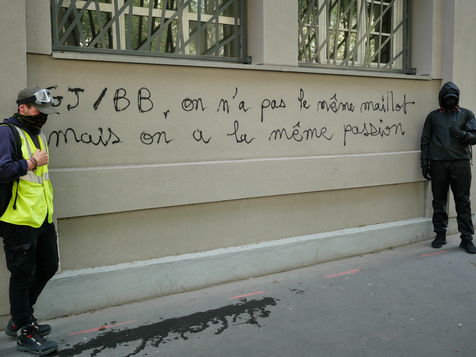 GJ/BB, on n'a pas le même maillot
mais on a la même passion